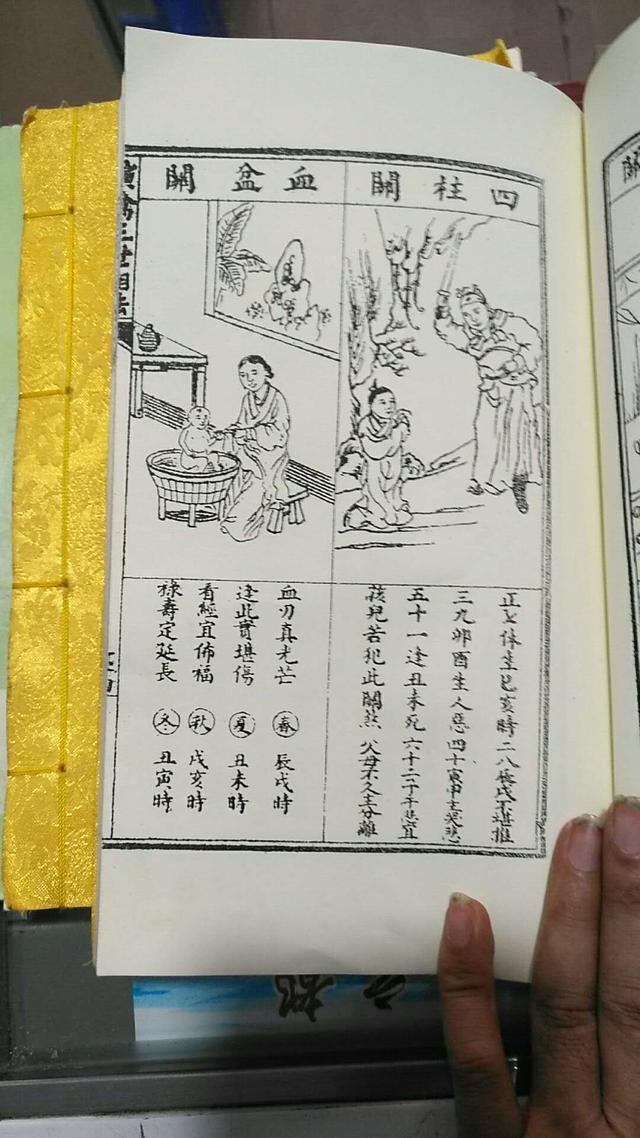 四柱關
正七休生巳亥時二八辰戌不堪推
三九卯酉生人惡四十寅申主哭悲
五十一逢丑未死六十二子午悲宜
孩兒若犯此關煞父母不久主分離
血盆關
血刃真光芒 春 辰戌時
逢此實堪傷 夏 丑未時
看經宜佈福 秋 戌亥時
祿壽定延長 冬 丑寅時
演禽三世相法